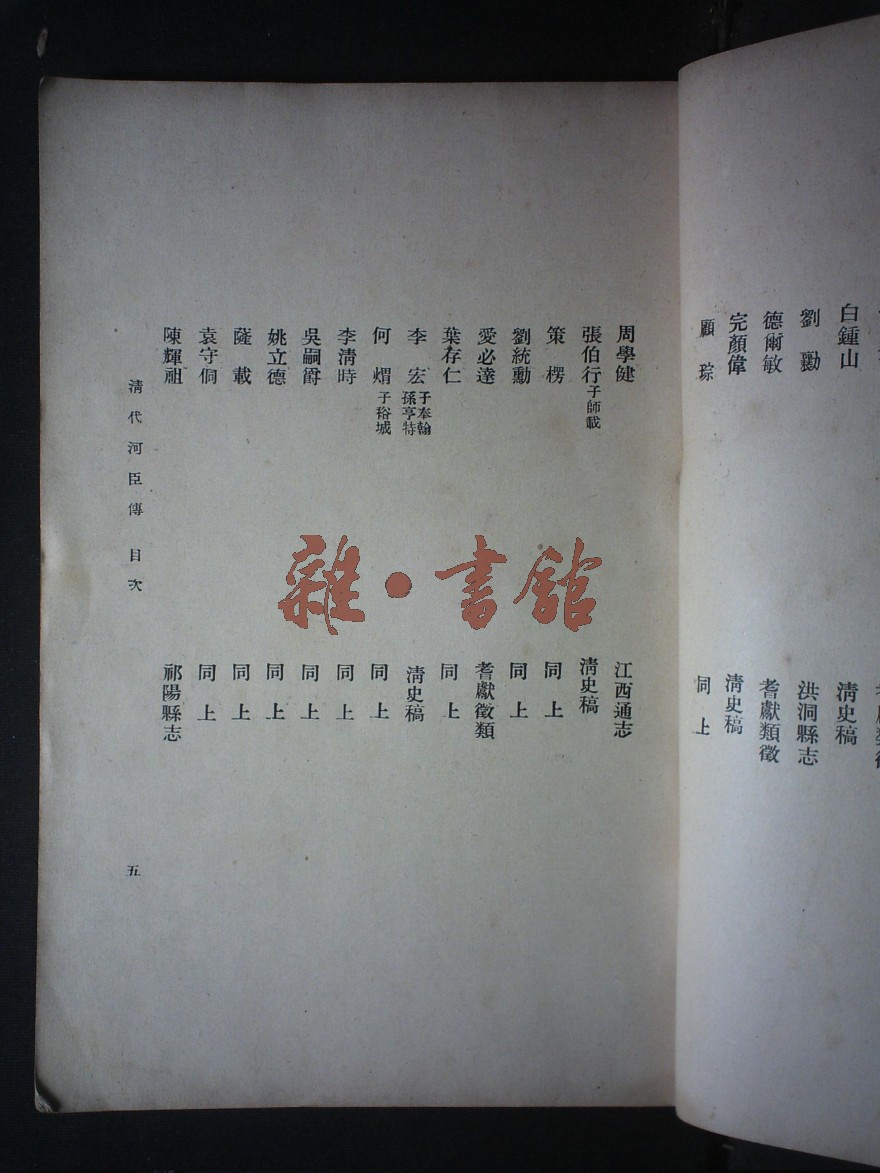 白鍾山 清史稿
劉勷 洪洞縣志
德爾敏 耆獻類徵
完顏偉 清史稿
顧琮 同上
周學健 江西通志
張伯行 子師載 清史稿
策楞 同上
劉統勳 同上
愛必達 耆獻徵類
葉存仁 同上
李宏 子奉翰 孫亨特 清史稿
何煟 子裕城 同上
李清時 同上
吳嗣爵 同上
姚立德 同上
薩載 同上
袁守侗 同上
陳輝祖 祁陽縣志
清代河臣傳 目次
五
雜·書館